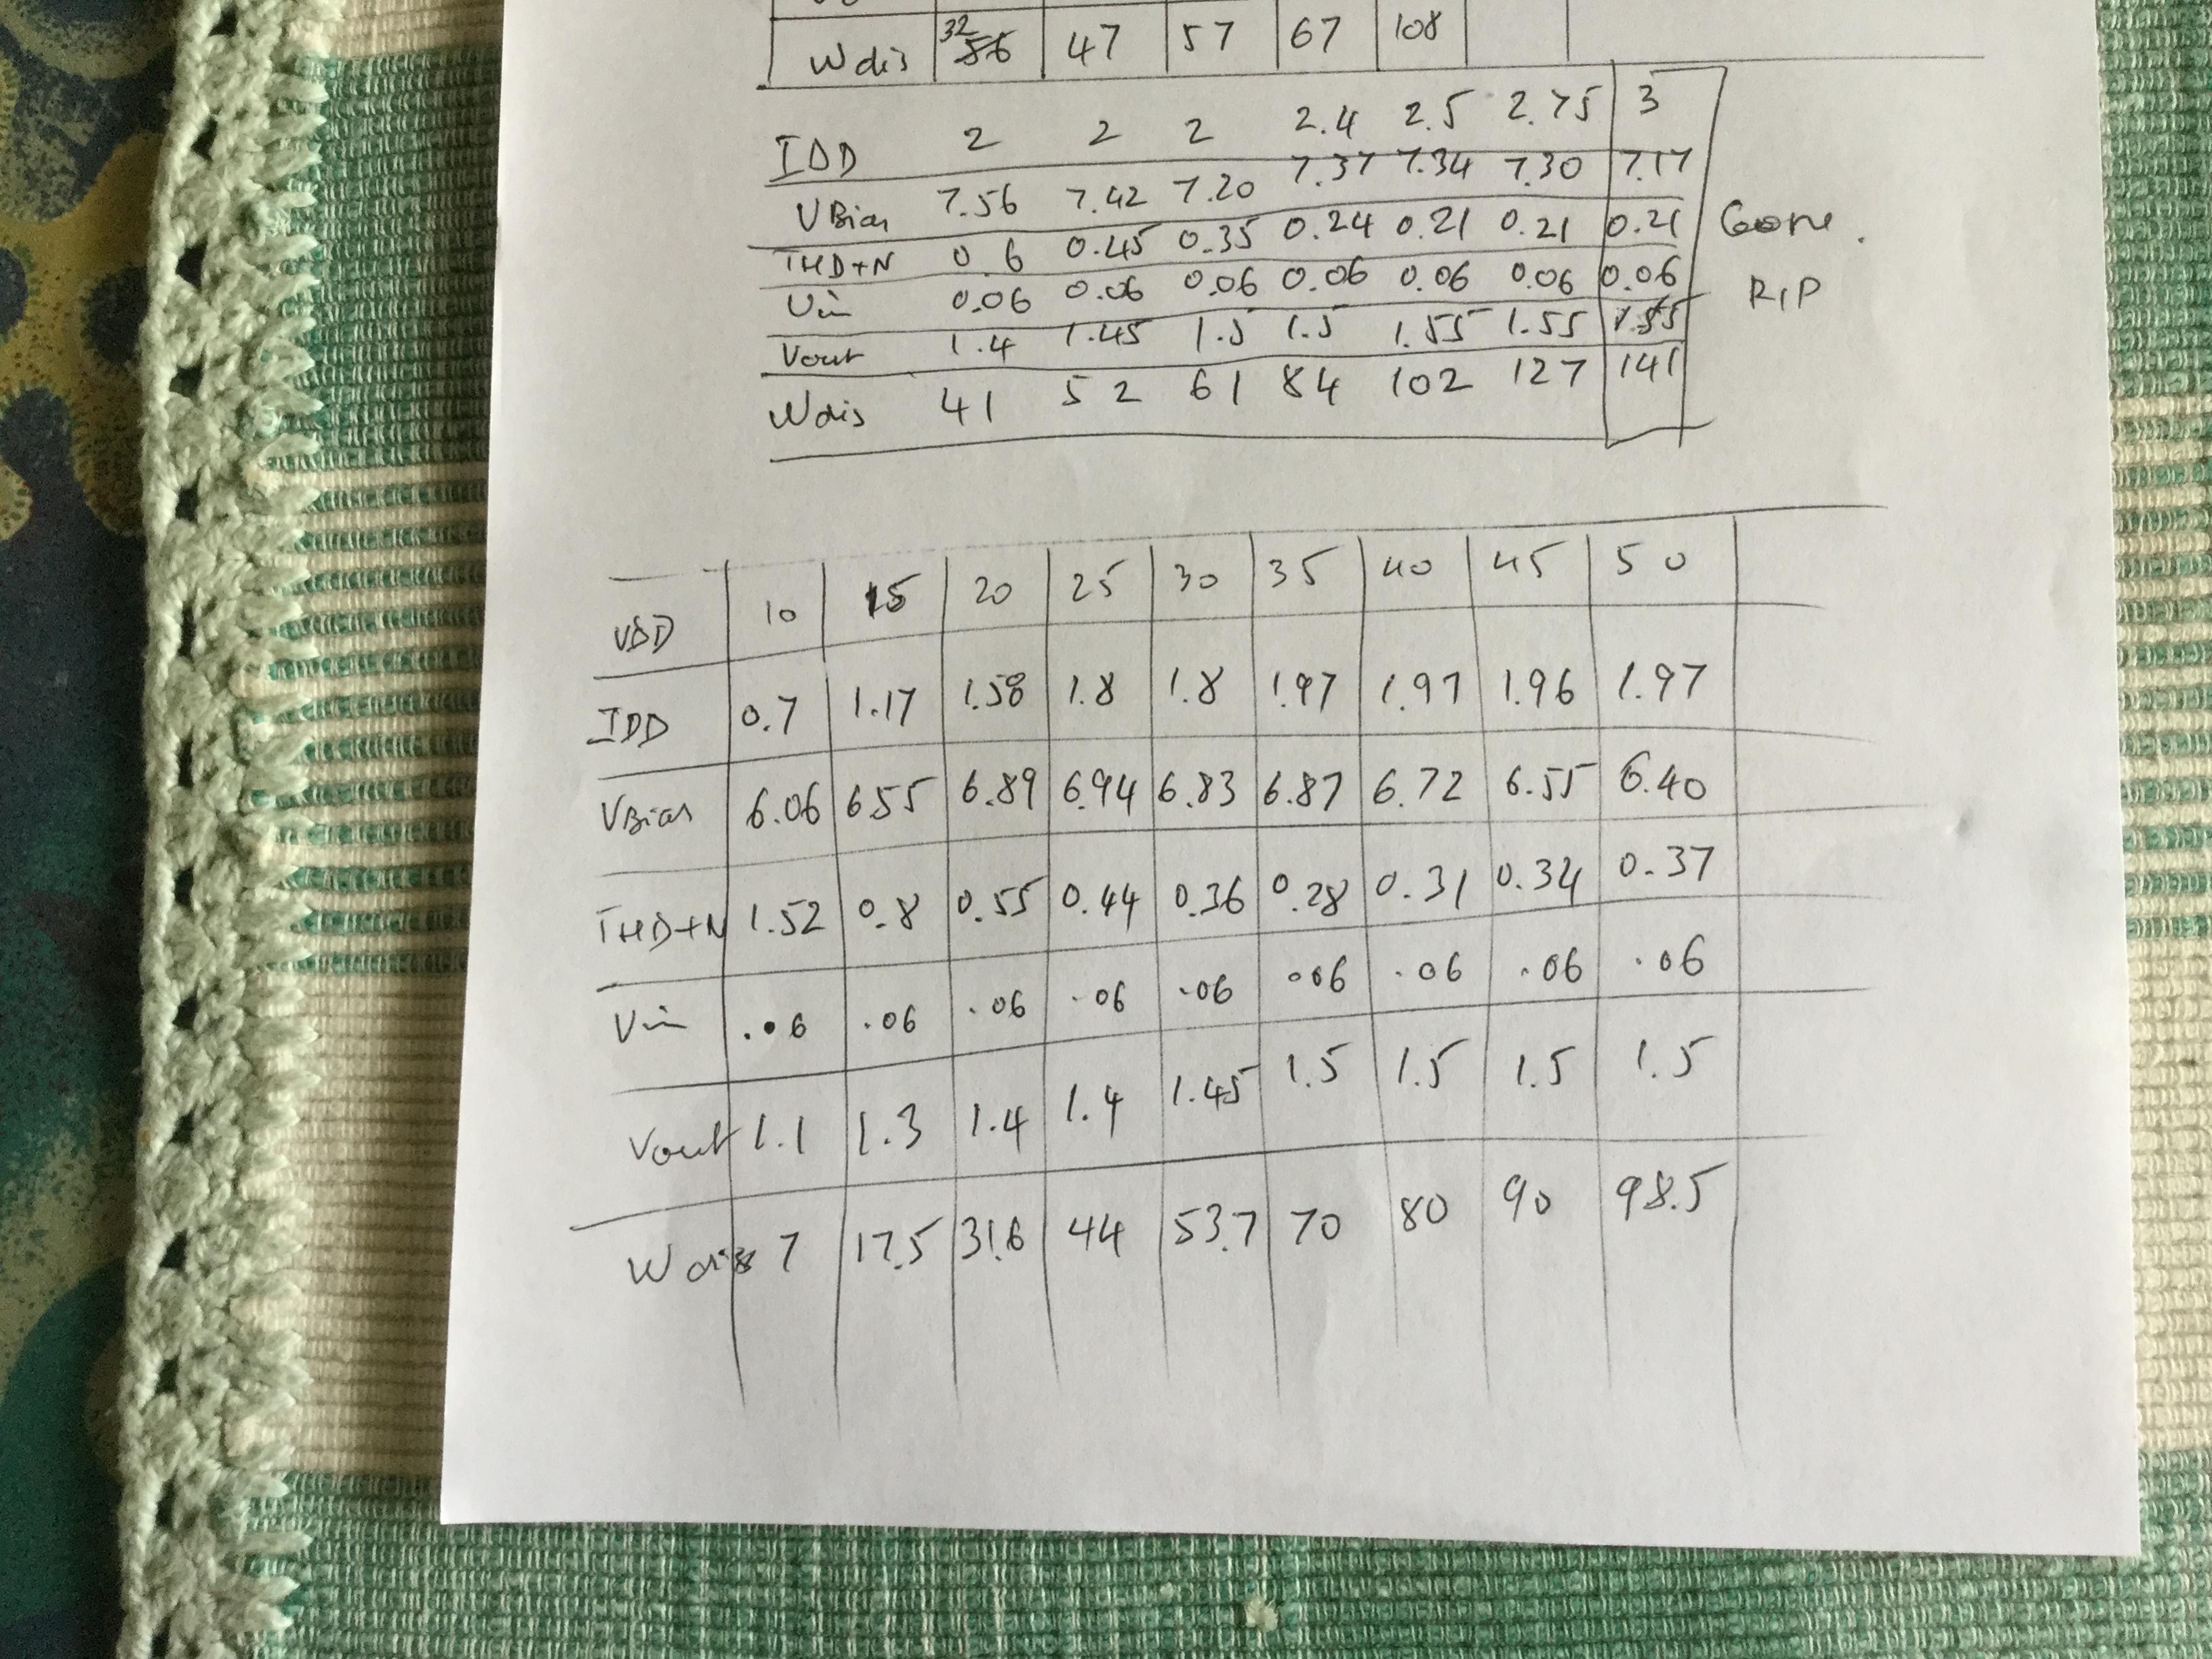 Wdis 32 56 47 57 67 108
IDD 2 2 2 2.4 2.5 2.75 3
VBias 7.56 7.42 7.20 7.37 7.34 7.30 7.17
THD+N 0.6 0.45 0.35 0.24 0.21 0.21 0.21 Gone.
Vin 0.06 0.06 0.06 0.06 0.06 0.06 0.06 RIP
Vout 1.4 1.45 1.5 1.5 1.55 1.55 1.55
Wdis 41 52 61 84 102 127 141
VDD 10 15 20 25 30 35 40 45 50
IDD 0.7 1.17 1.58 1.8 1.8 1.97 1.97 1.96 1.97
VBias 6.06 6.55 6.89 6.94 6.83 6.87 6.72 6.55 6.40
THD+N 1.52 0.8 0.55 0.44 0.36 0.28 0.31 0.34 0.37
Vin .06 .06 .06 .06 .06 .06 .06 .06 .06
Vout 1.1 1.3 1.4 1.4 1.45 1.5 1.5 1.5 1.5
Wdis 7 17.5 31.6 44 53.7 70 80 90 98.5